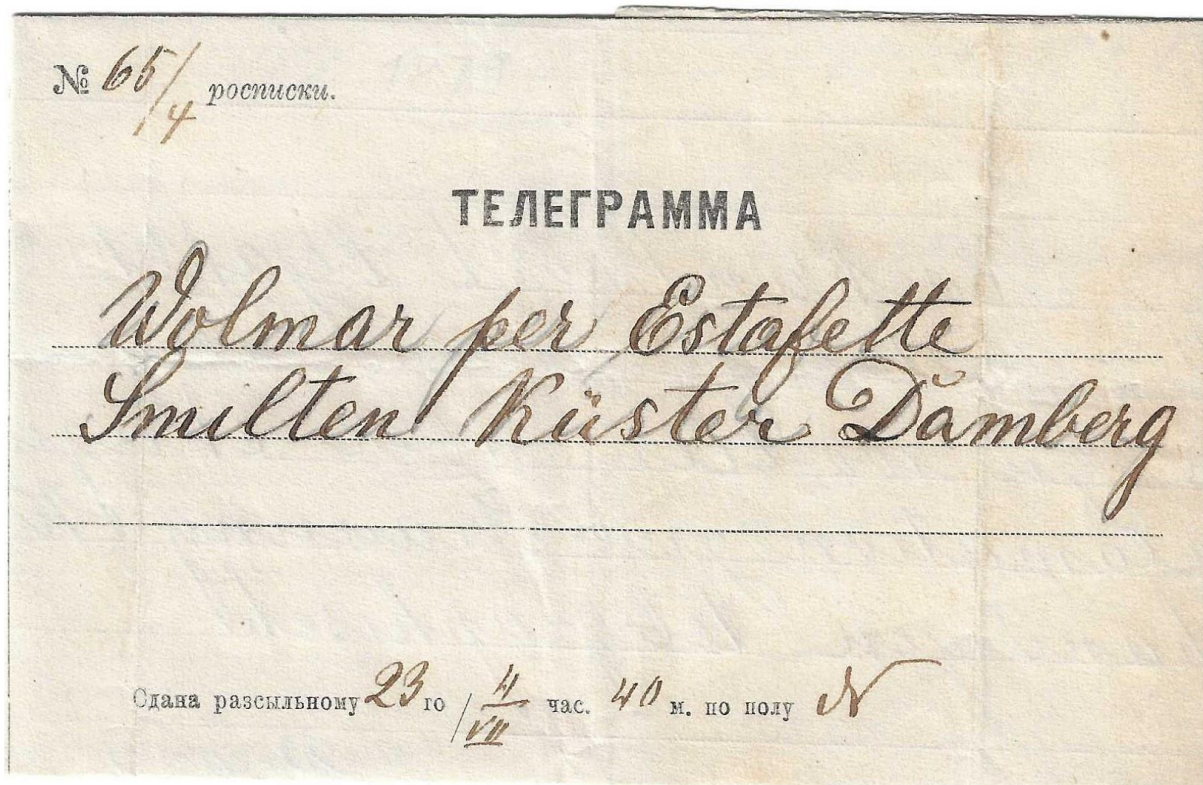 № 65/4 росписки.
ТЕЛЕГРАММА
Wolmar per Estafette
Smilten Küster Damberg
Сдана разсыльному 23 го / 4/VII час. 40 м. по полу N